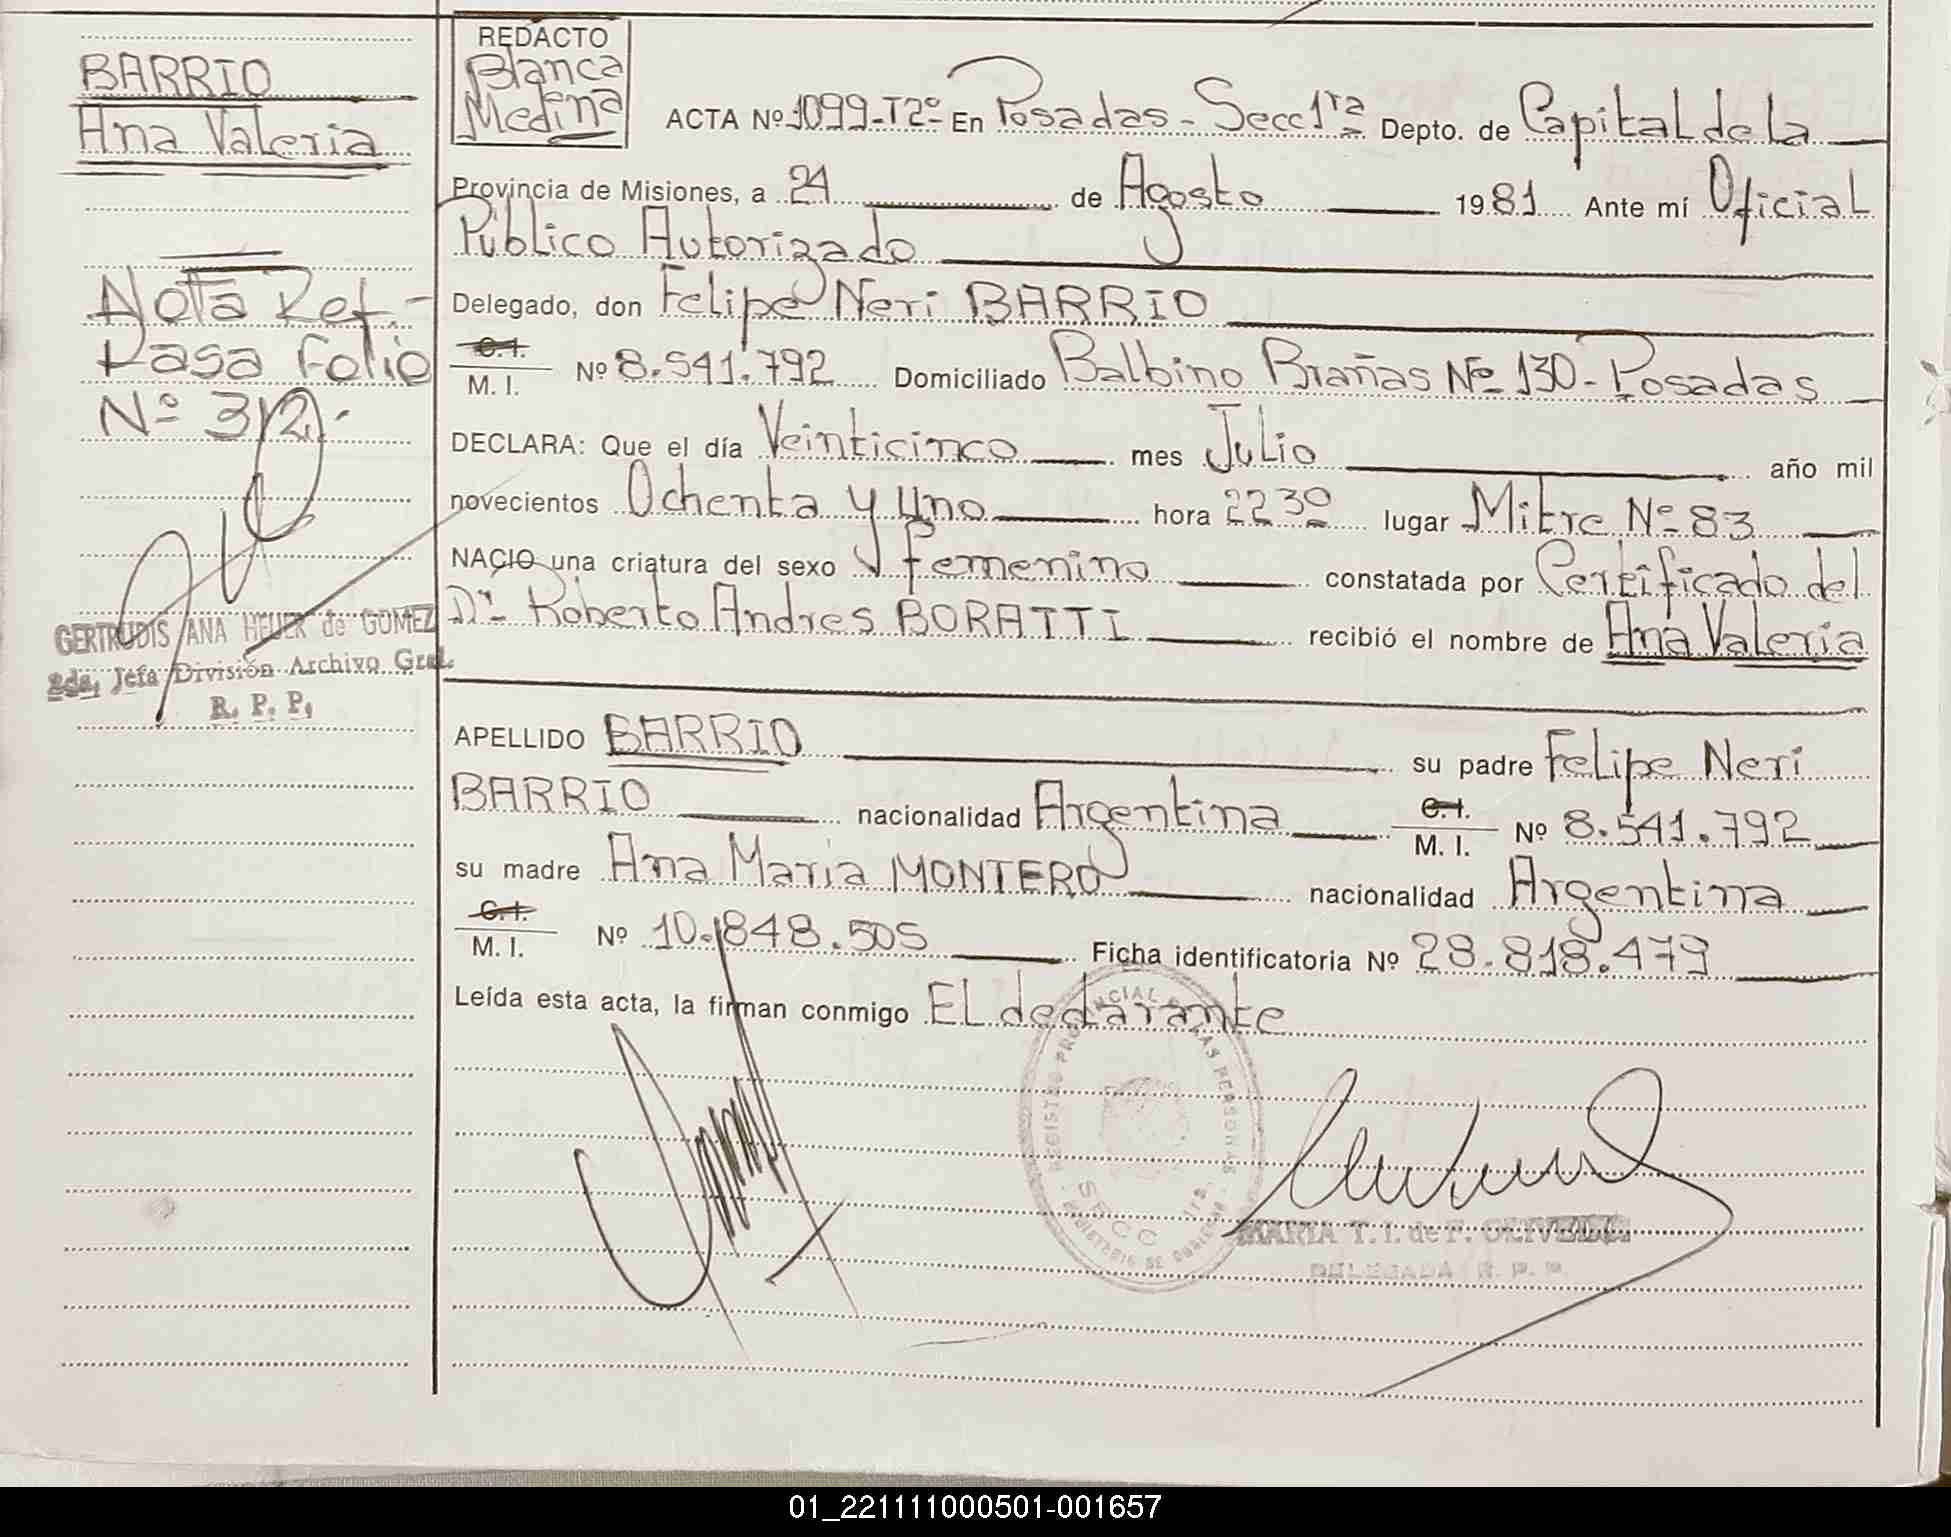 BARRIO
Ana Valeria
Nota Ref.-
Pasa Folio
Nº 312.-
GERTRUDIS ANA HEUER de GOMEZ
2da. Jefa División Archivo Gral.
R. P. P.
REDACTO
Blanca
Medina
ACTA Nº 1099-T2º En Posadas - Secc 1ra Depto. de Capital de la
Provincia de Misiones, a 24 de Agosto 1981 Ante mí Oficial
Público Autorizado
Delegado, don Felipe Neri BARRIO
C.I. M. I. Nº 8.541.792 Domiciliado Balbino Brañas Nº 130 - Posadas
DECLARA: Que el día Veinticinco mes Julio año mil
novecientos Ochenta y Uno hora 22 30 lugar Mitre Nº 83
NACIO una criatura del sexo femenino constatada por Certificado del
Dr. Roberto Andres BORATTI recibió el nombre de Ana Valeria
APELLIDO BARRIO su padre Felipe Neri
BARRIO nacionalidad Argentina C.I. M. I. Nº 8.541.792
su madre Ana Maria MONTERO nacionalidad Argentina
C.I. M. I. Nº 10.848.505 Ficha identificatoria Nº 28.818.479
Leída esta acta, la firman conmigo EL declarante
REGISTRO PROVINCIAL DE LAS PERSONAS
SECC 1ra.
MARIA T. I. de F. OLIVEIRA
DELEGADA R. P. P.
01_221111000501-001657